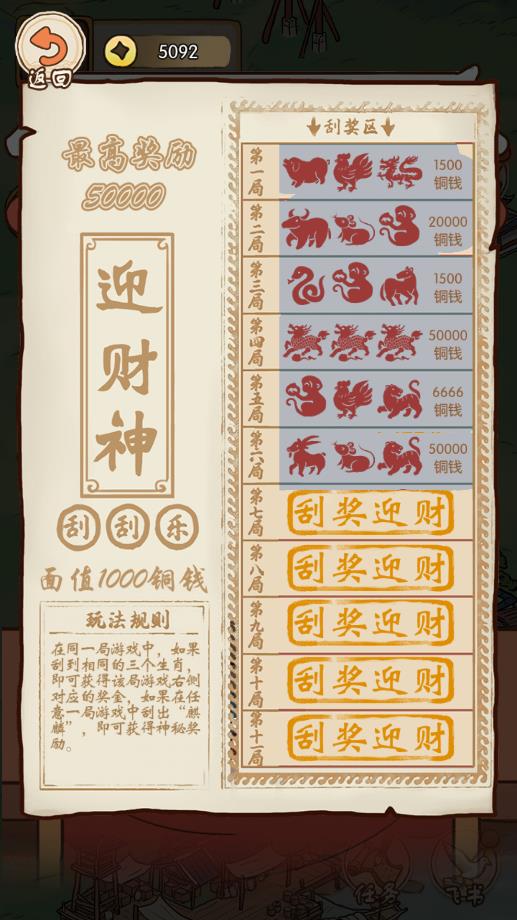 返回
5092
最高奖励
50000
迎财神
刮刮乐
面值1000铜钱
玩法规则
在同一局游戏中，如果
刮到相同的三个生肖，
即可获得该局游戏右侧
对应的奖金，如果在任
意一局游戏中刮出“麒
麟”，即可获得神秘奖
励。
刮奖区
第一局
1500
铜钱
第二局
20000
铜钱
第三局
1500
铜钱
第四局
50000
铜钱
第五局
6666
铜钱
第六局
50000
铜钱
第七局
刮奖迎财
第八局
刮奖迎财
第九局
刮奖迎财
第十局
刮奖迎财
第十一局
刮奖迎财
任务
飞书